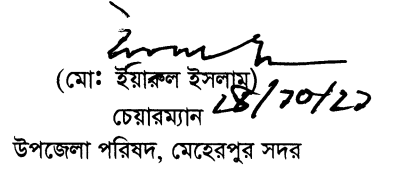 (মো: ইয়ারুল ইসলাম)
চেয়ারম্যান
উপজেলা পরিষদ, মেহেরপুর সদর